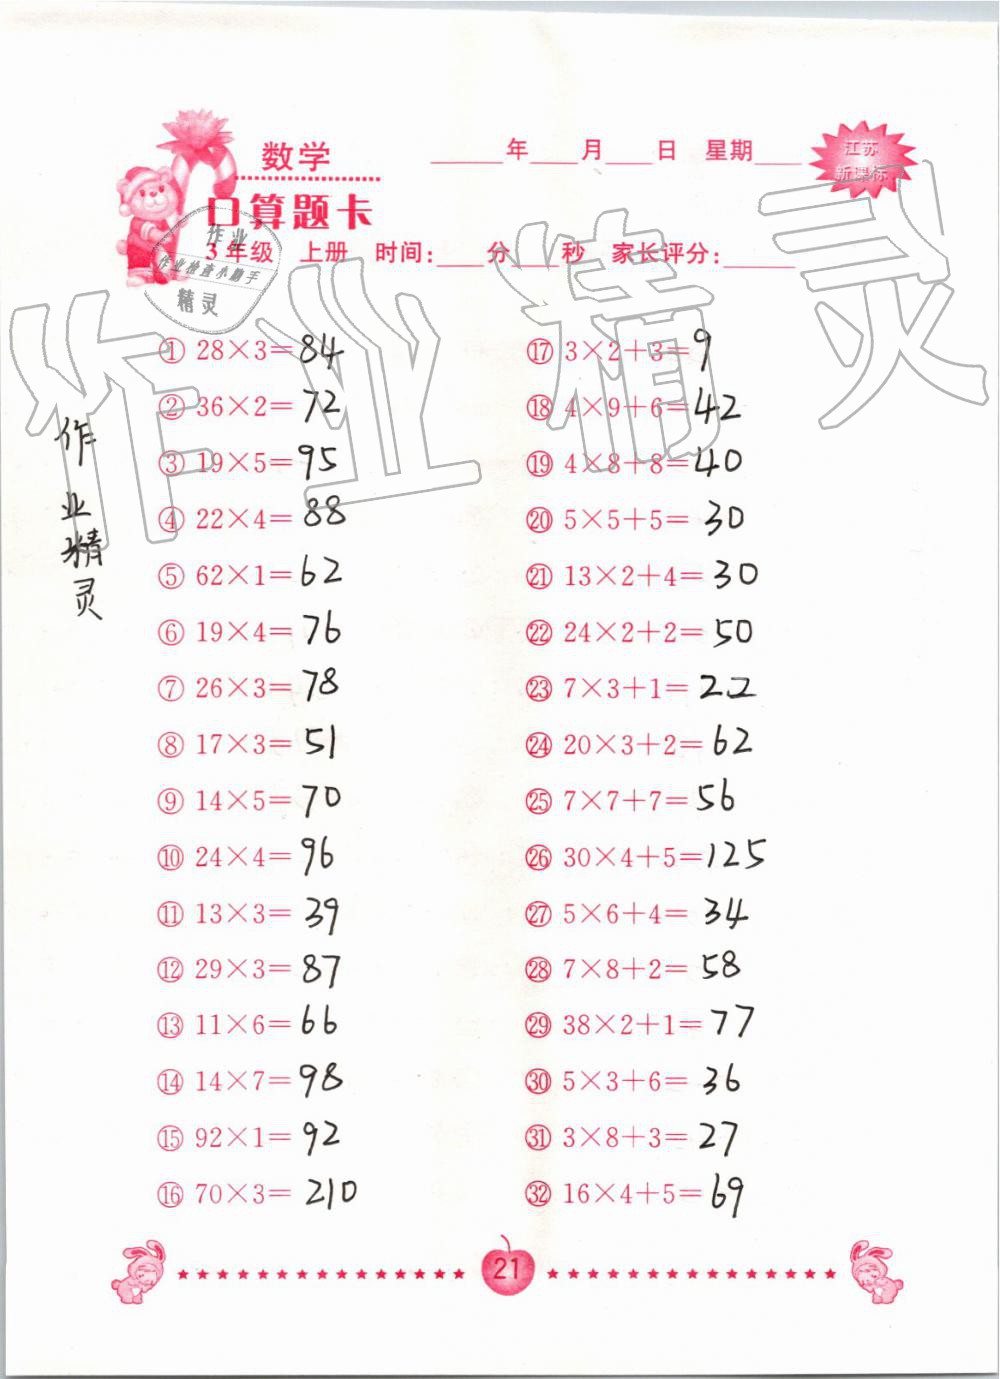 数学
____年___月___日 星期___
江苏
新课标
口算题卡
3年级 上册 时间:___分___秒 家长评分:_____
作业
作业检查小助手
精灵
作业精灵
作业精灵
① 28×3=84
② 36×2=72
③ 19×5=95
④ 22×4=88
⑤ 62×1=62
⑥ 19×4=76
⑦ 26×3=78
⑧ 17×3=51
⑨ 14×5=70
⑩ 24×4=96
⑪ 13×3=39
⑫ 29×3=87
⑬ 11×6=66
⑭ 14×7=98
⑮ 92×1=92
⑯ 70×3=210
⑰ 3×2+3=9
⑱ 4×9+6=42
⑲ 4×8+8=40
⑳ 5×5+5=30
㉑ 13×2+4=30
㉒ 24×2+2=50
㉓ 7×3+1=22
㉔ 20×3+2=62
㉕ 7×7+7=56
㉖ 30×4+5=125
㉗ 5×6+4=34
㉘ 7×8+2=58
㉙ 38×2+1=77
㉚ 5×3+6=36
㉛ 3×8+3=27
㉜ 16×4+5=69
21